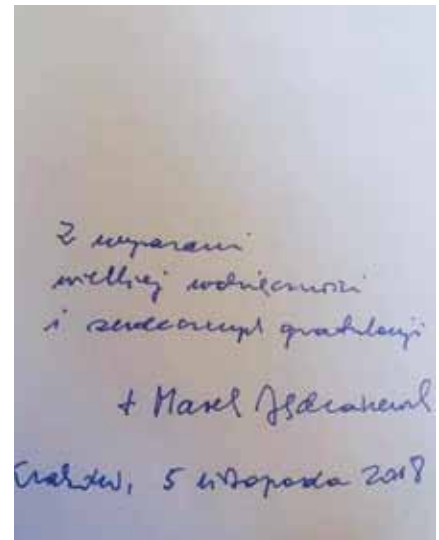 Z wyrazami
wielkiej wdzięczności
i serdecznych gratulacji
+ Marek Jędraszewski
Kraków, 5 listopada 2018